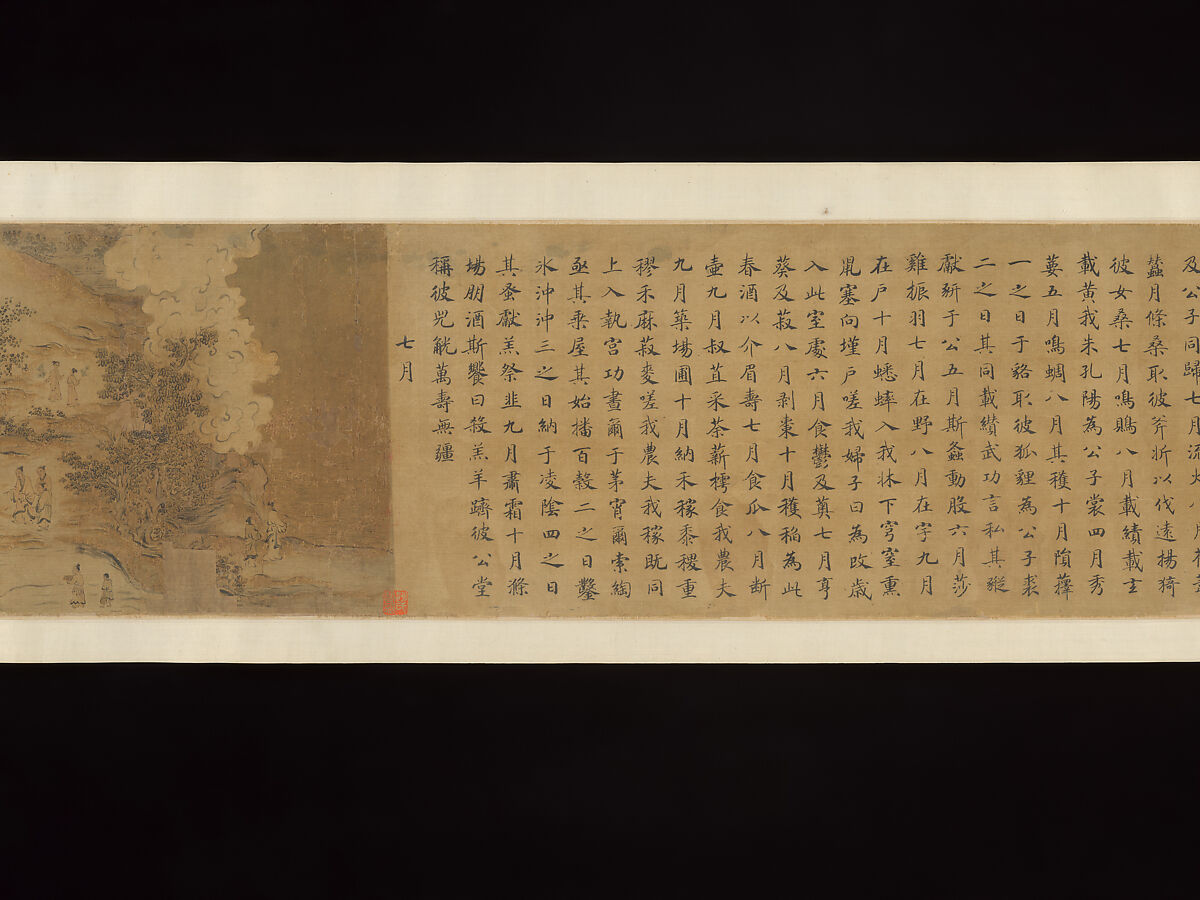 及公子同歸七月流火八月
蠶月條桑取彼斧斨以伐遠揚猗
彼女桑七月鳴鵙八月載績載玄
載黃我朱孔陽為公子裳四月秀
葽五月鳴蜩八月其穫十月隕蘀
一之日于貉取彼狐貍為公子裘
二之日其同載纘武功言私其豵
獻豜于公五月斯螽動股六月莎
雞振羽七月在野八月在宇九月
在戶十月蟋蟀入我牀下穹窒熏
鼠塞向墐戶嗟我婦子曰為改歲
入此室處六月食鬱及薁七月亨
葵及菽八月剥棗十月穫稻為此
春酒以介眉壽七月食瓜八月断
壷九月叔苴采荼薪樗食我農夫
九月築場圃十月納禾稼黍稷重
穋禾麻菽麥嗟我農夫我稼既同
上入執宮功晝爾于茅宵爾索綯
亟其乘屋其始播百穀二之日鑿
氷沖沖三之日納于凌陰四之日
其蚤獻羔祭韭九月肅霜十月滌
場朋酒斯饗曰殺羔羊躋彼公堂
稱彼兕觥萬壽無疆
七月